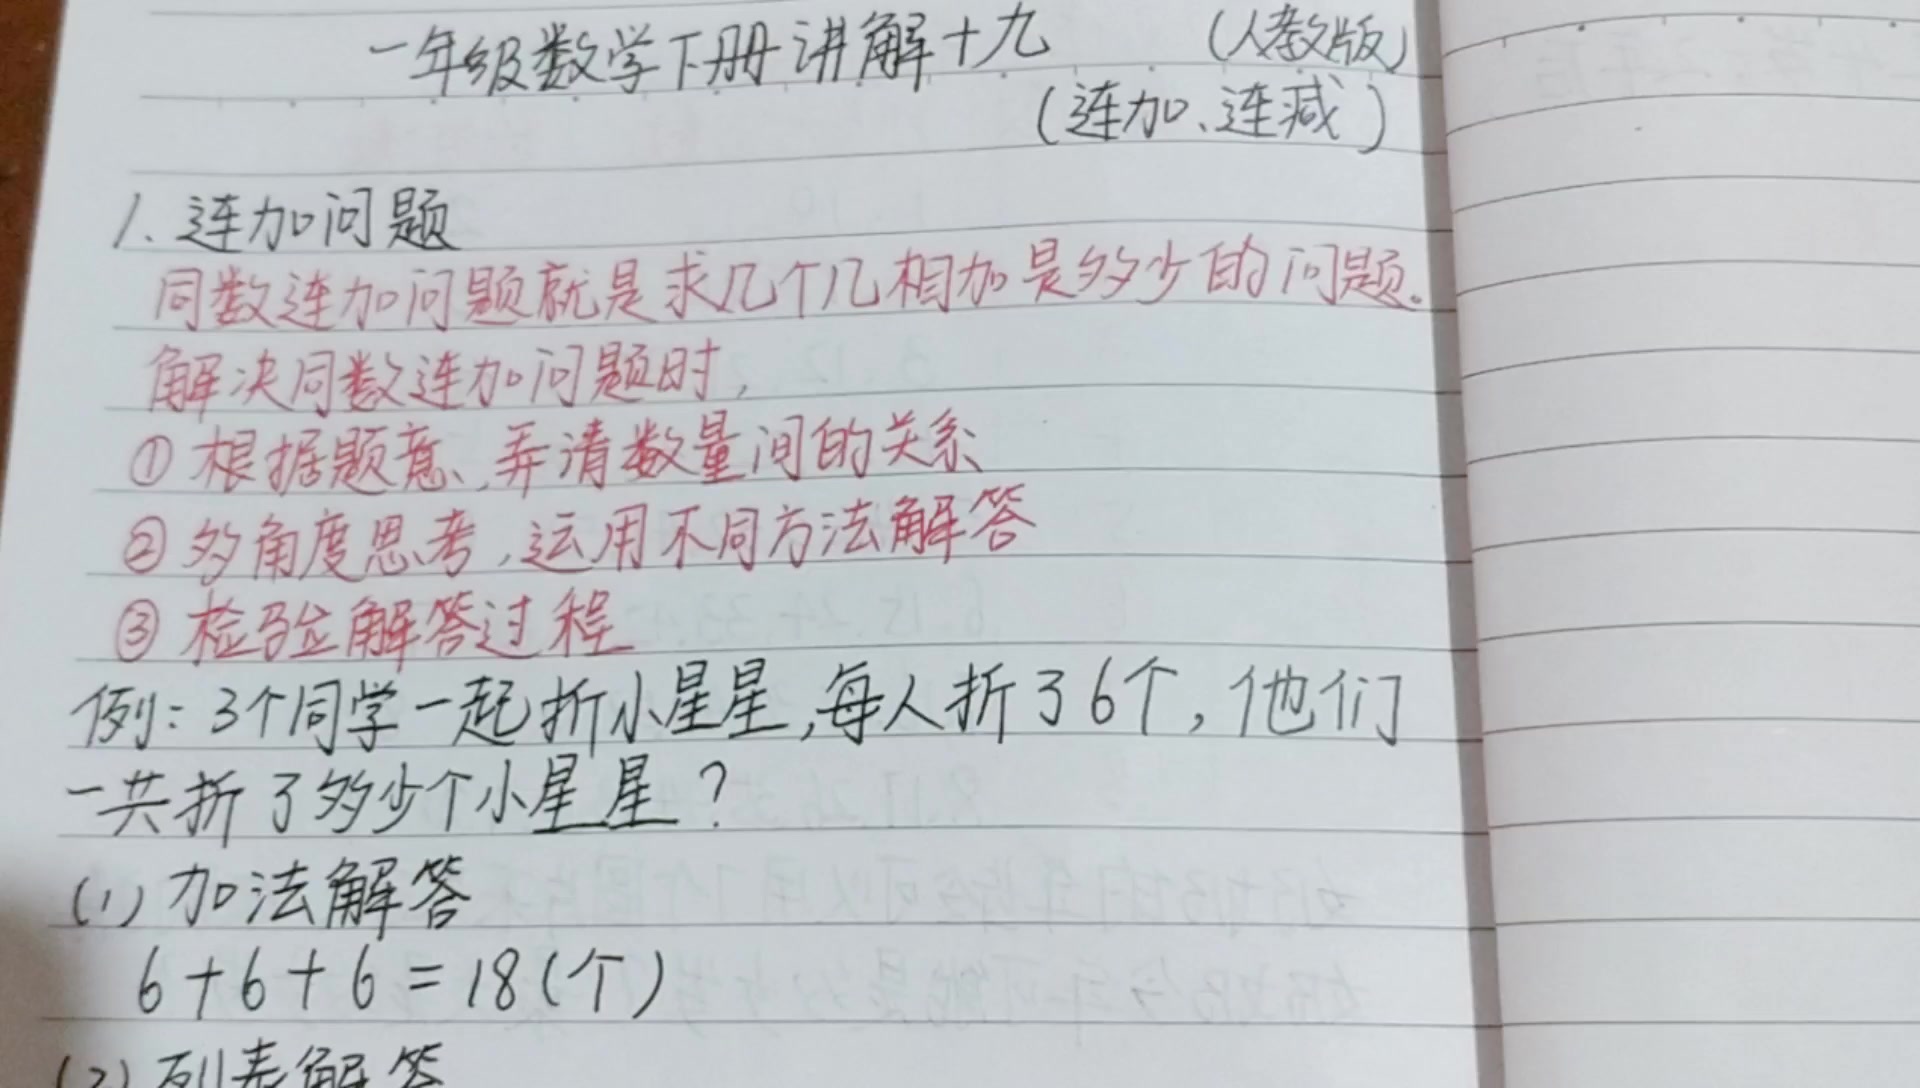 一年级数学下册讲解十九 (人教版)
(连加、连减)
1. 连加问题
同数连加问题就是求几个几相加是多少的问题。
解决同数连加问题时,
① 根据题意、弄清数量间的关系
② 多角度思考,运用不同方法解答
③ 检验解答过程
例:3个同学一起折小星星,每人折了6个,他们
一共折了多少个小星星?
(1) 加法解答
6+6+6=18(个)
(2) 列表解答